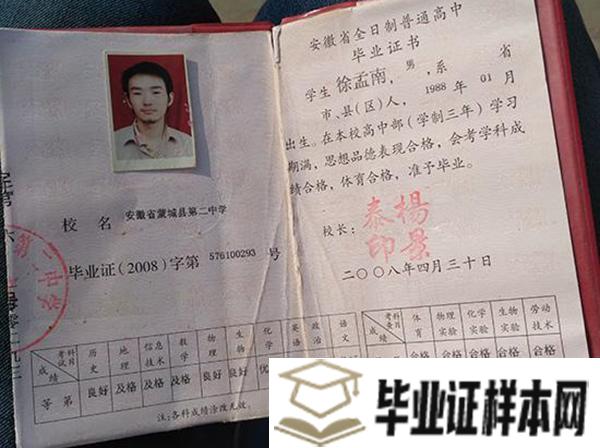 校 名 安徽省蒙城县第二中学
毕业证(2008)字第 576100293 号
考试科目 历史 地理 信息技术 数学 物理 生物 化学 英语 政治 语文
成绩
等 第 良好 及格 及格 及格 良好 良好
注:各科成绩涂改无效。
安徽省全日制普通高中
毕业证书
学生 徐孟南,男,系 省
市、县(区)人,1988 年 01 月
出生。在本校高中部(学制三年)学习
期满,思想品德表现合格,会考学科成
绩合格,体育合格,准予毕业。
校长:
二〇〇八年四月三十日
考查科目 体育 物理实验 化学实验 生物实验 劳动技术
成绩
合格 合格 合格 合格
毕业证样本网